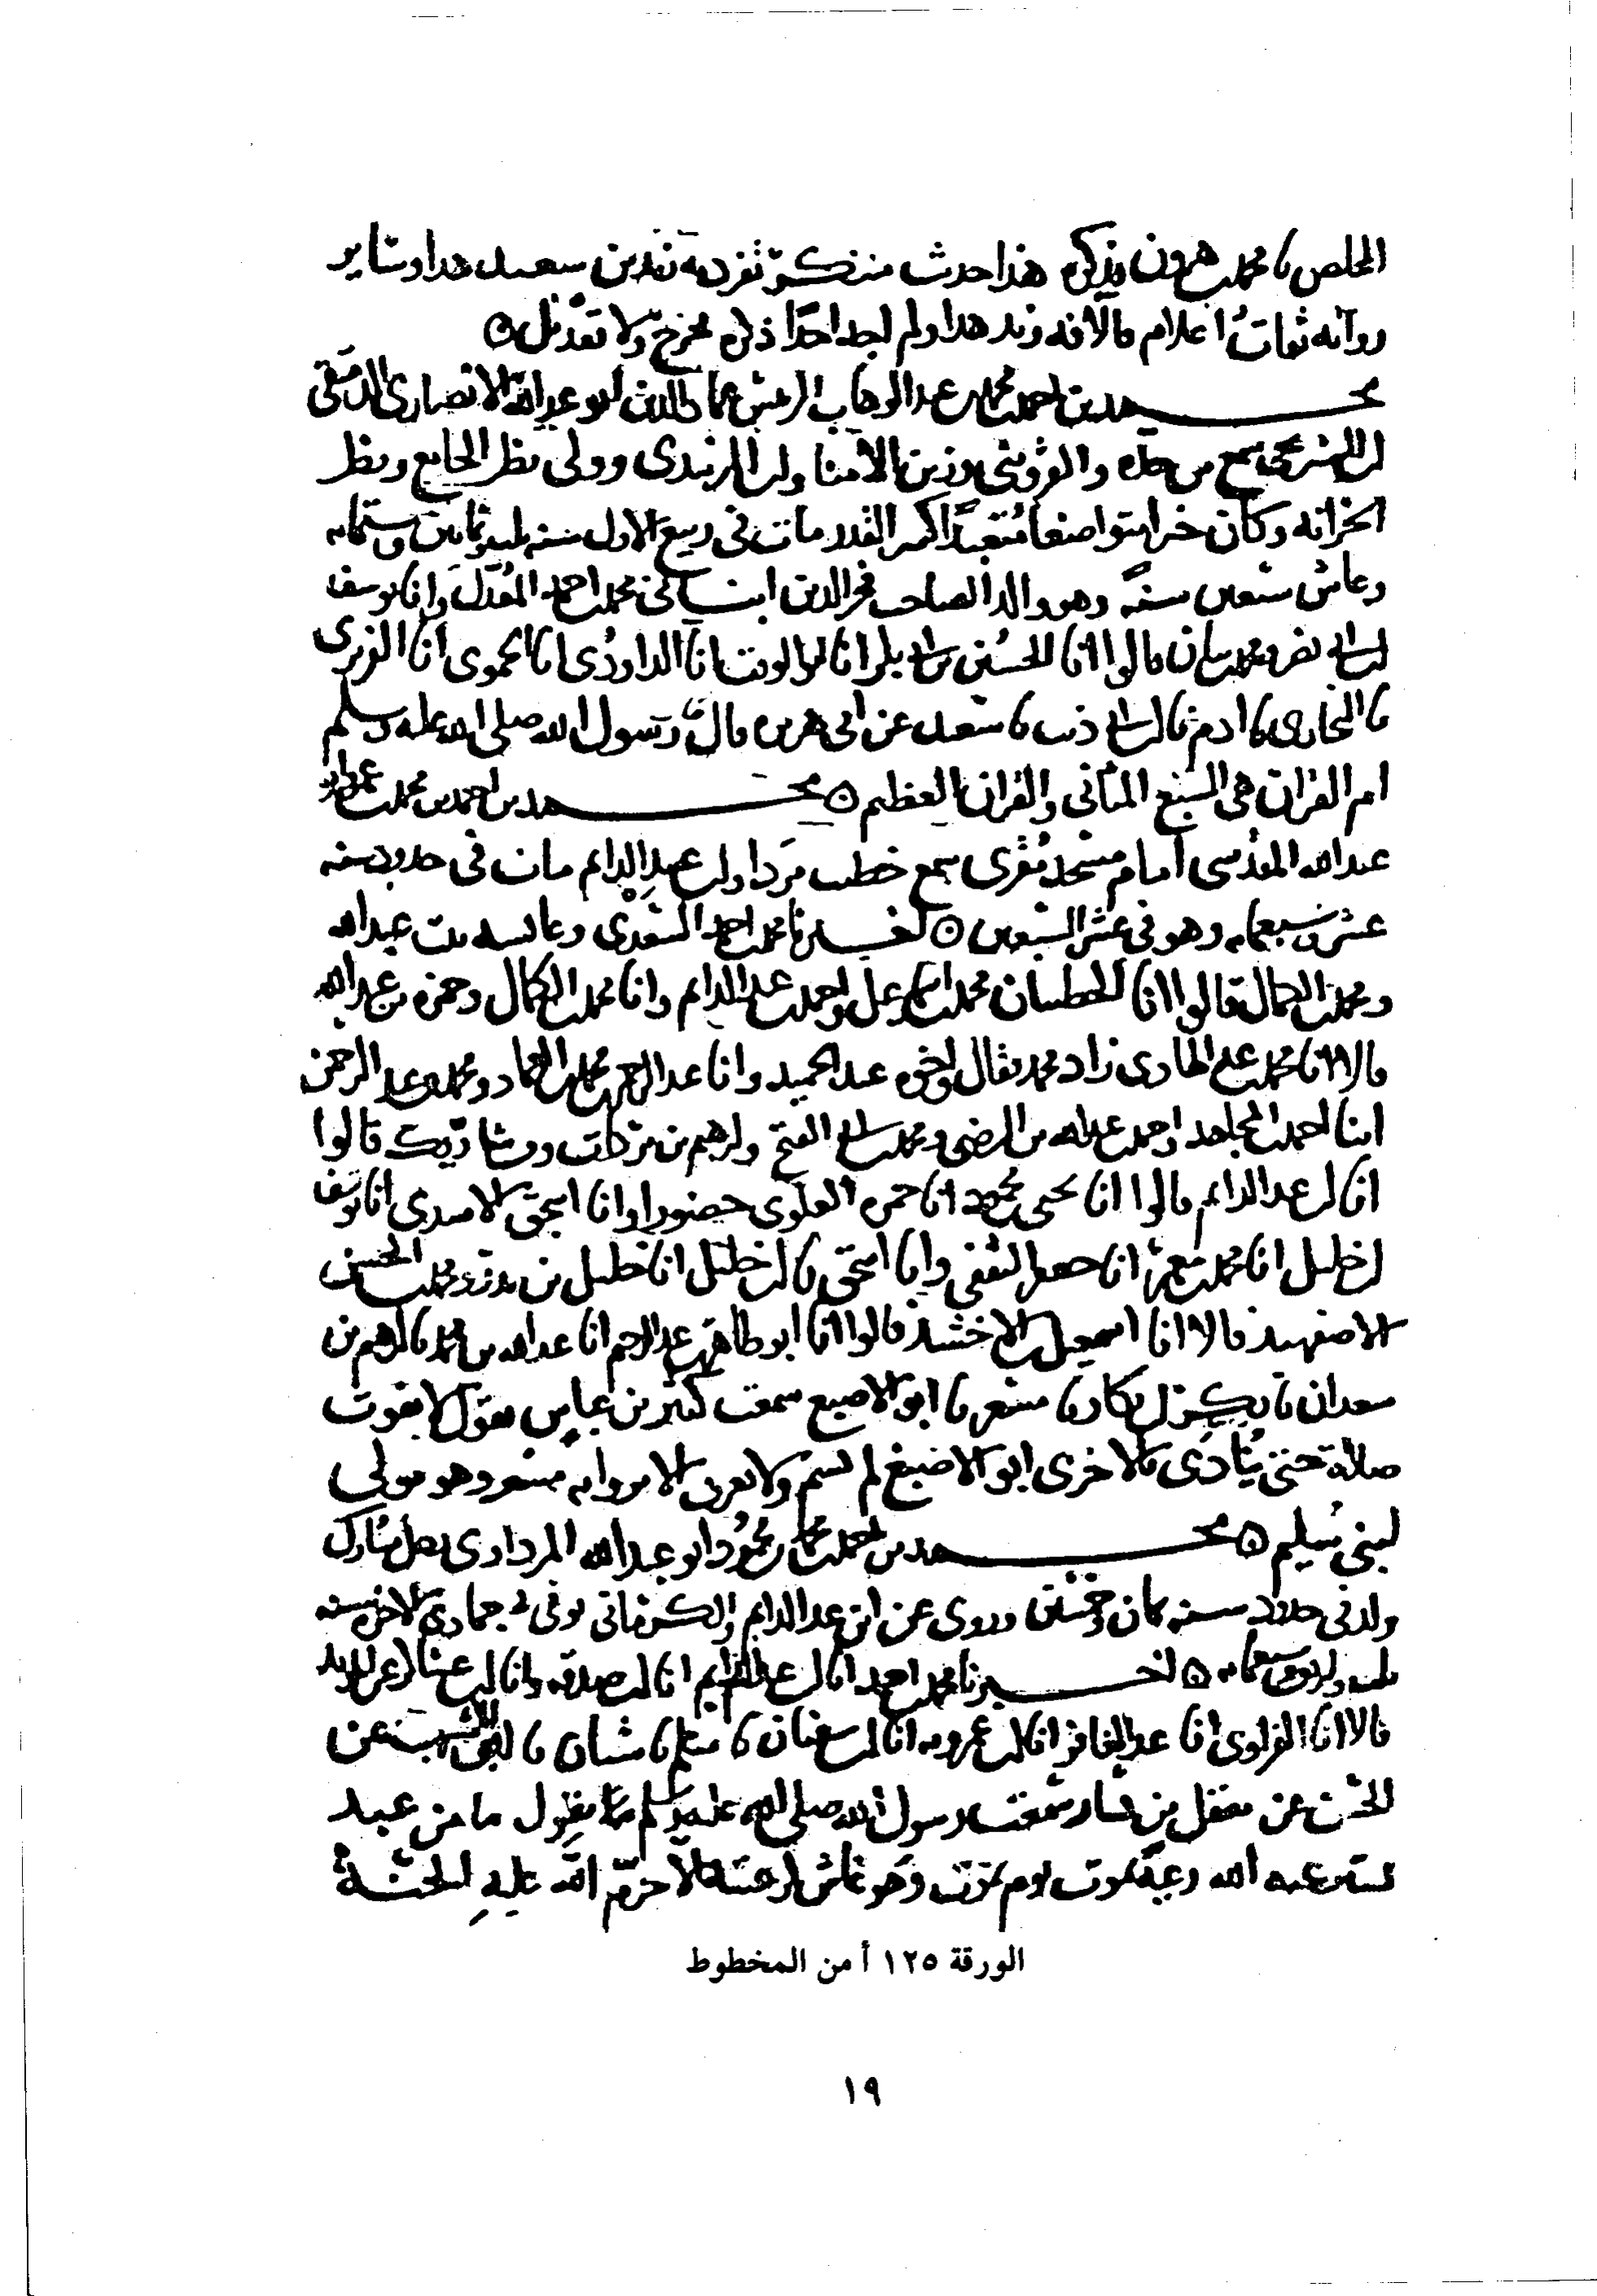 المخلص نا محمد بن هرون فذكره هذا حديث منكر تفرد به زيد بن سعيد هذا وسائر
رواته ثقات أعلام فالآفة زيد هذا ولم أجد أحدًا ذكره بجرح ولا تعديل ۞
محمد بن احمد بن محمد بن عبد الوهاب الرئيس عماد الدين ابو عبد الله الانصاري الدمشقي
ابن الشيرجي سمع من والقزويني وزين الأمنا وابن الزبيدي وولي نظر الجامع ونظر
الخزانة وكان خيرا متواضعا متعبدًا كبير القدر مات في ربيع الاول سنة وثمانين وستمائة
وعاش سنة وهو والد الصاحب فخر الدين انبأني محمد بن احمد المعدل وانا يوسف
ابن ابي نصر ومحمد بن بيان قالوا انا الحسين بن ابي بكر انا ابو الوقت انا الداودي انا الحموي انا الفربري
نا البخاري نا ادم نا ابن ابي ذئب نا سعيد عن ابي هريرة قال رسول الله صلى الله عليه وسلم
ام القران هي السبع المثاني والقران العظيم ۞ محمد بن احمد بن محمد بن
عبد الله المقدسي امام مسجد مقرئ سمع خطيب مردا وابن عبد الدايم مات في حدود سنة
عشر وسبعمائة وهو في عشر السبعين ۞ اخبرنا محمد بن احمد السعدي وعائشة بنت عبد الله
ومحمد بن الكمال قالوا انا الخطيبان محمد بن اسماعيل واحمد بن عبد الدايم وانا محمد بن الكمال وحمزة بن عبد الله
قالا انا محمد بن عبد الهادي زاد محمد فقال واخوه عبد الحميد وانا عبد الرحمن محمد بن العماد ومحمد وعبد الرحمن
ابنا احمد بن المجاهد واحمد بن عبد الله بن الرضي ومحمد بن ابي الفتح وابرهيم بن بركات قالوا
انا ابن عبد الدايم قالوا انا يحيى بن محمود انا حمزة العلوي حضورا وانا اسحق الاسدي انا يوسف
ابن خليل انا محمد بن معمر انا جعفر الثقفي وانا اسحق نا ابن خليل انا خليل بن بدر ومحمد بن الحسن
الاصفهبذ قالا انا اسمعيل بن الاخشيذ قالوا انا ابو طاهر بن عبد الرحيم انا عبد الله بن محمد نا ابرهيم بن
سعدان نا بكر بن بكار نا مسعر نا ابو الاصبغ سمعت كثير بن عباس يقول لا تفوت
صلاة حتى ينادى بالاخرى ابو الاصبغ لم يسم ولا يعرف الا برواية مسعر وهو مولى
لبني سليم ۞ محمد بن احمد بن محمد بن محمود ابو عبد الله المرداوي رجل مبارك
ولد في حدود سنة ثمان وخمسين وروى عن ابن عبد الدايم والكرماني توفي في جمادى الاخرة سنة
وسبعمائة ۞ اخبرنا محمد بن احمد انا ابن عبد الدايم انا ابن صدقة وانا ابن عساكر عن المؤيد
قالا انا الفراوي انا عبد الغافر انا ابن عمرويه انا ابن سفيان نا مسلم نا شيبان نا ابو الاشهب عن
الحسن عن معقل بن يسار سمعت رسول الله صلى الله عليه وسلم يقول ما من عبد
يسترعيه الله رعية يموت يوم يموت وهو غاش لرعيته الا حرم الله عليه الجنة
الورقة ١٢٥ أ من المخطوط
١٩